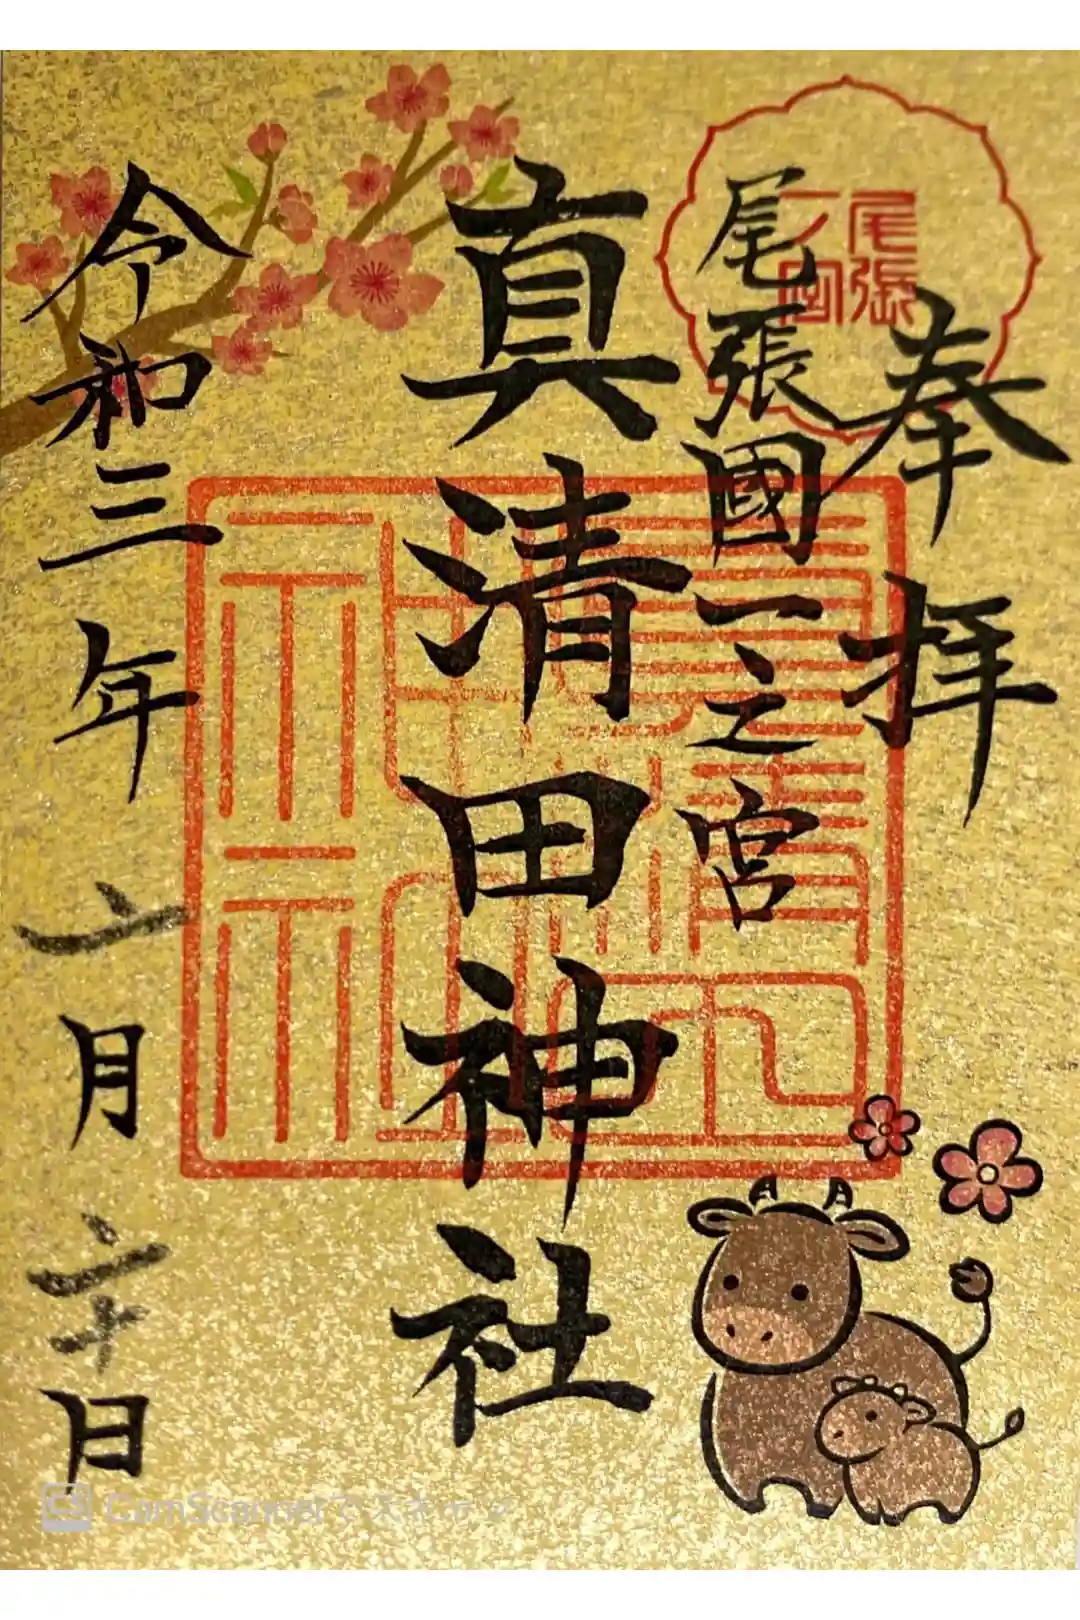 奉拝
尾張
一ノ宮
尾張國一之宮
真清田神社
令和三年二月二十日
CS CamScannerでスキャン